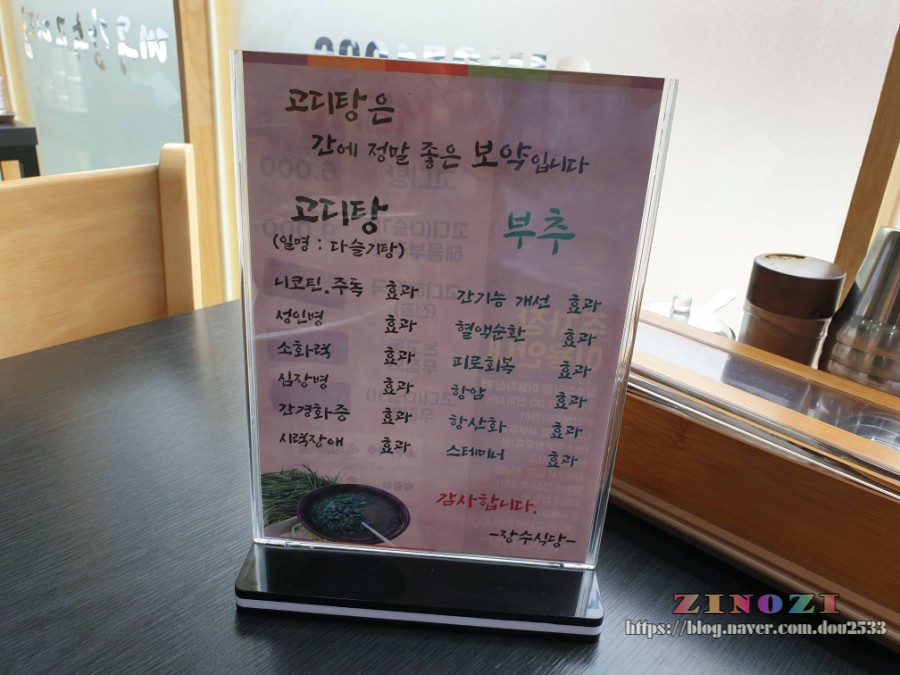 고디탕은
간에 정말 좋은 보약입니다
고디탕
(일명 : 다슬기탕)
니코틴.주독 효과
성인병 효과
소화력 효과
심장병 효과
간경화증 효과
시력장애 효과
부추
간기능 개선 효과
혈액순환 효과
피로회복 효과
항암 효과
항산화 효과
스테미너 효과
감사합니다.
-장수식당-
ZINOZI
https://blog.naver.com.dou2533